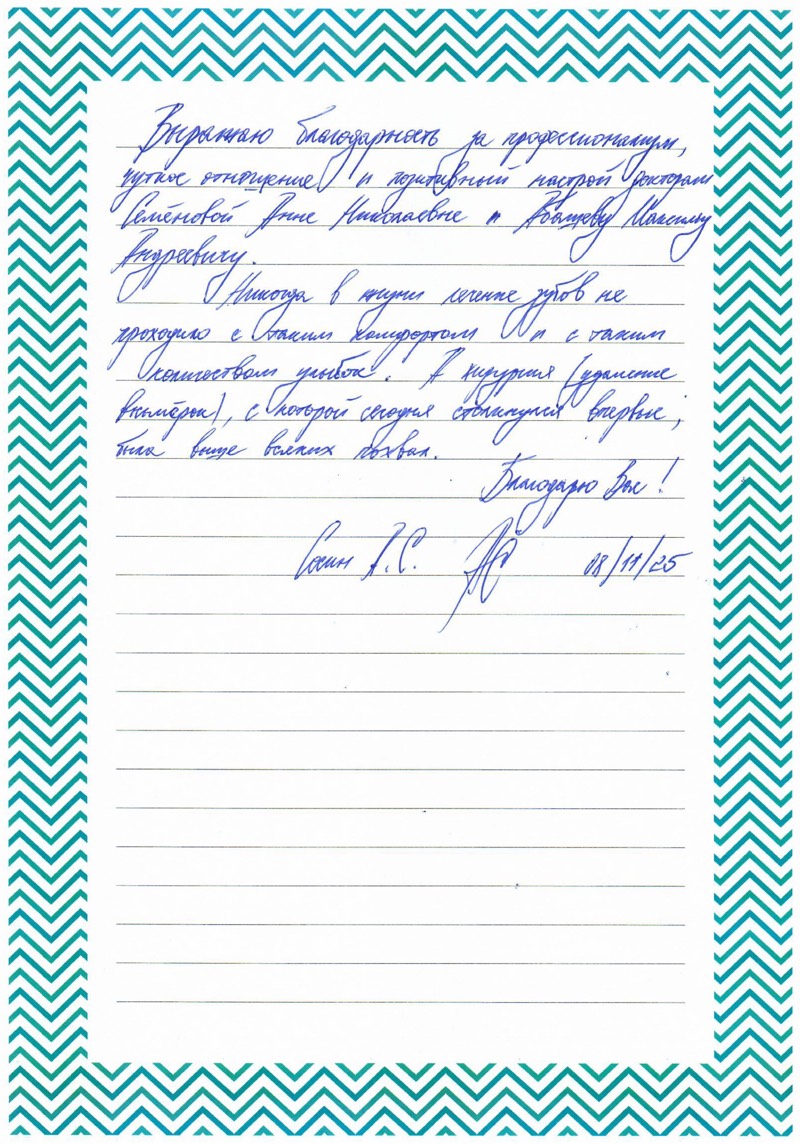 Выражаю благодарность за профессионализм,
чуткое отношение и позитивный настрой докторам
Семёновой Анне Николаевне и Максиму
Андреевичу.
Никогда в жизни лечение зубов не
проходило с таким комфортом и с таким
количеством улыбок. А хирургия (удаление
), с которой сегодня столкнулся впервые,
была выше всяких похвал.
Благодарю Вас!
А.С. 08/11/25